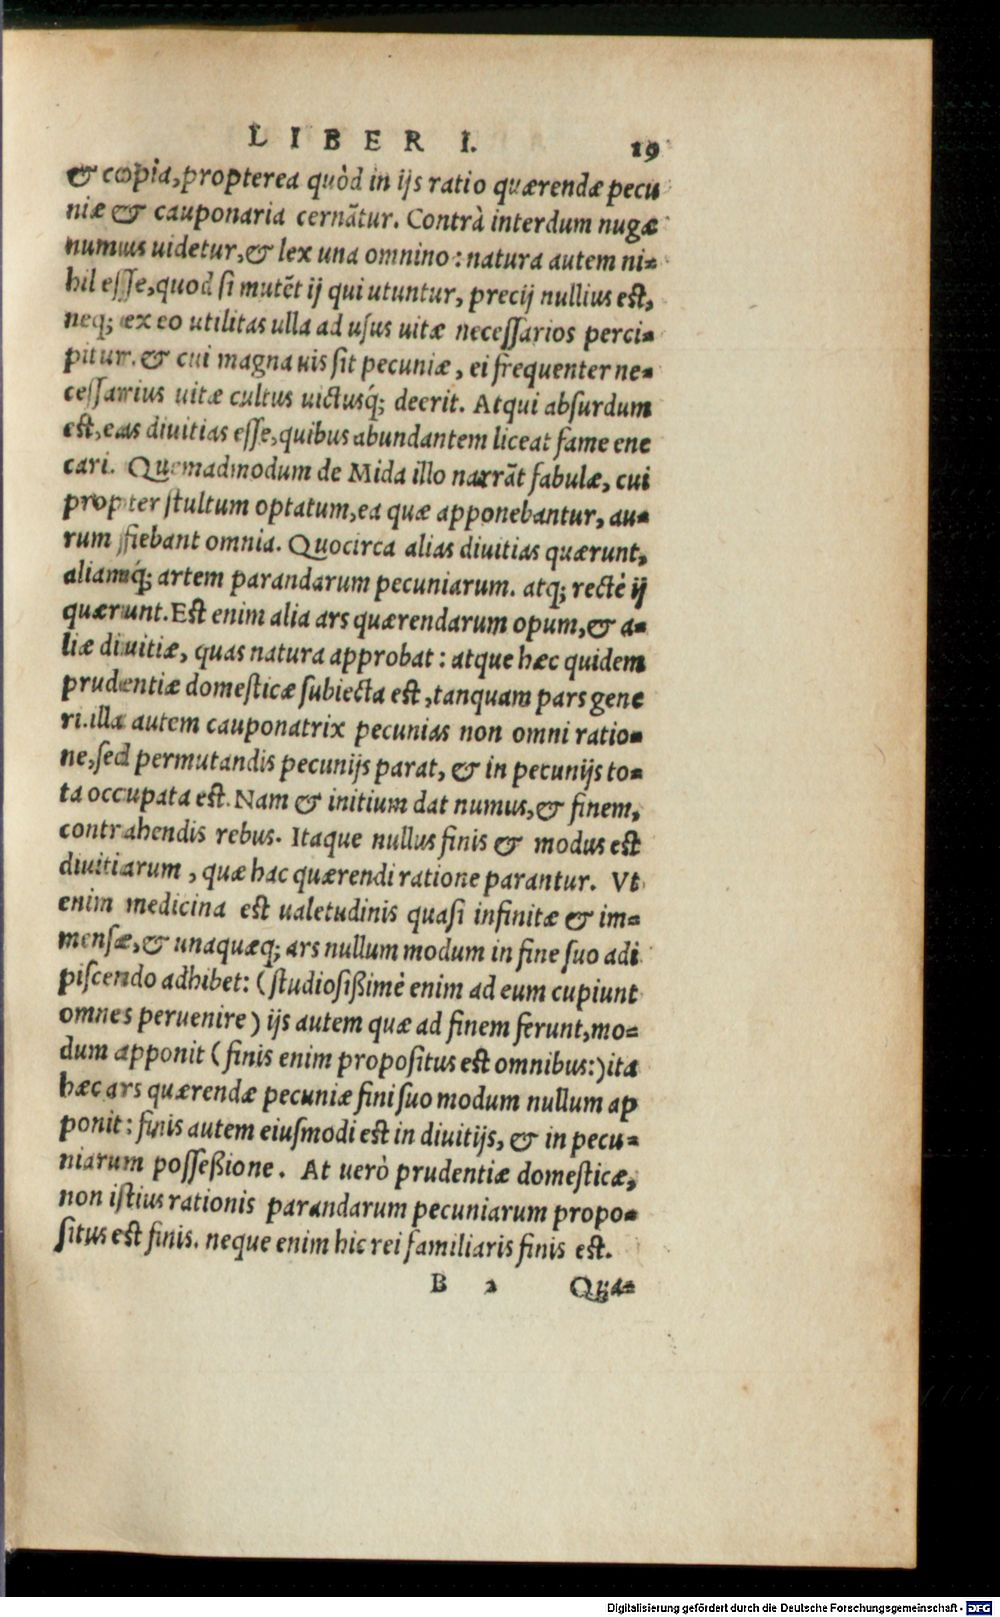 LIBER I. 19
& copia, propterea quòd in ijs ratio quærendæ pecu
niæ & cauponaria cernãtur. Contrà interdum nugæ
numus uidetur, & lex una omnino: natura autem ni-
hil esse, quod si mutẽt ij qui utuntur, precij nullius est,
neq; ex eo utilitas ulla ad usus uitæ necessarios perci-
pitur. & cui magna uis sit pecuniæ, ei frequenter ne-
cessarius uitæ cultus uictusq́; deerit. Atqui absurdum
est, eas diuitias esse, quibus abundantem liceat fame ene
cari. Quemadmodum de Mida illo narrãt fabulæ, cui
propter stultum optatum, ea quæ apponebantur, au-
rum fiebant omnia. Quocirca alias diuitias quærunt,
aliamq́; artem parandarum pecuniarum. atq; rectè ij
quærunt. Est enim alia ars quærendarum opum, & a-
liæ diuitiæ, quas natura approbat: atque hæc quidem
prudentiæ domesticæ subiecta est, tanquam pars gene
ri. illa autem cauponatrix pecunias non omni ratio-
ne, sed permutandis pecunijs parat, & in pecunijs to-
ta occupata est. Nam & initium dat numus, & finem,
contrahendis rebus. Itaque nullus finis & modus est
diuitiarum, quæ hac quærendi ratione parantur. Vt
enim medicina est ualetudinis quasi infinitæ & im-
mensæ, & unaquæq; ars nullum modum in fine suo adi
piscendo adhibet: (studiosißimè enim ad eum cupiunt
omnes peruenire) ijs autem quæ ad finem ferunt, mo-
dum apponit (finis enim propositus est omnibus:) ita
hæc ars quærendæ pecuniæ fini suo modum nullum ap
ponit: finis autem eiusmodi est in diuitijs, & in pecu-
niarum posseßione. At uerò prudentiæ domesticæ,
non istius rationis parandarum pecuniarum propo-
situs est finis. neque enim hic rei familiaris finis est.
B 2 Qua-
Digitalisierung gefördert durch die Deutsche Forschungsgemeinschaft - DFG